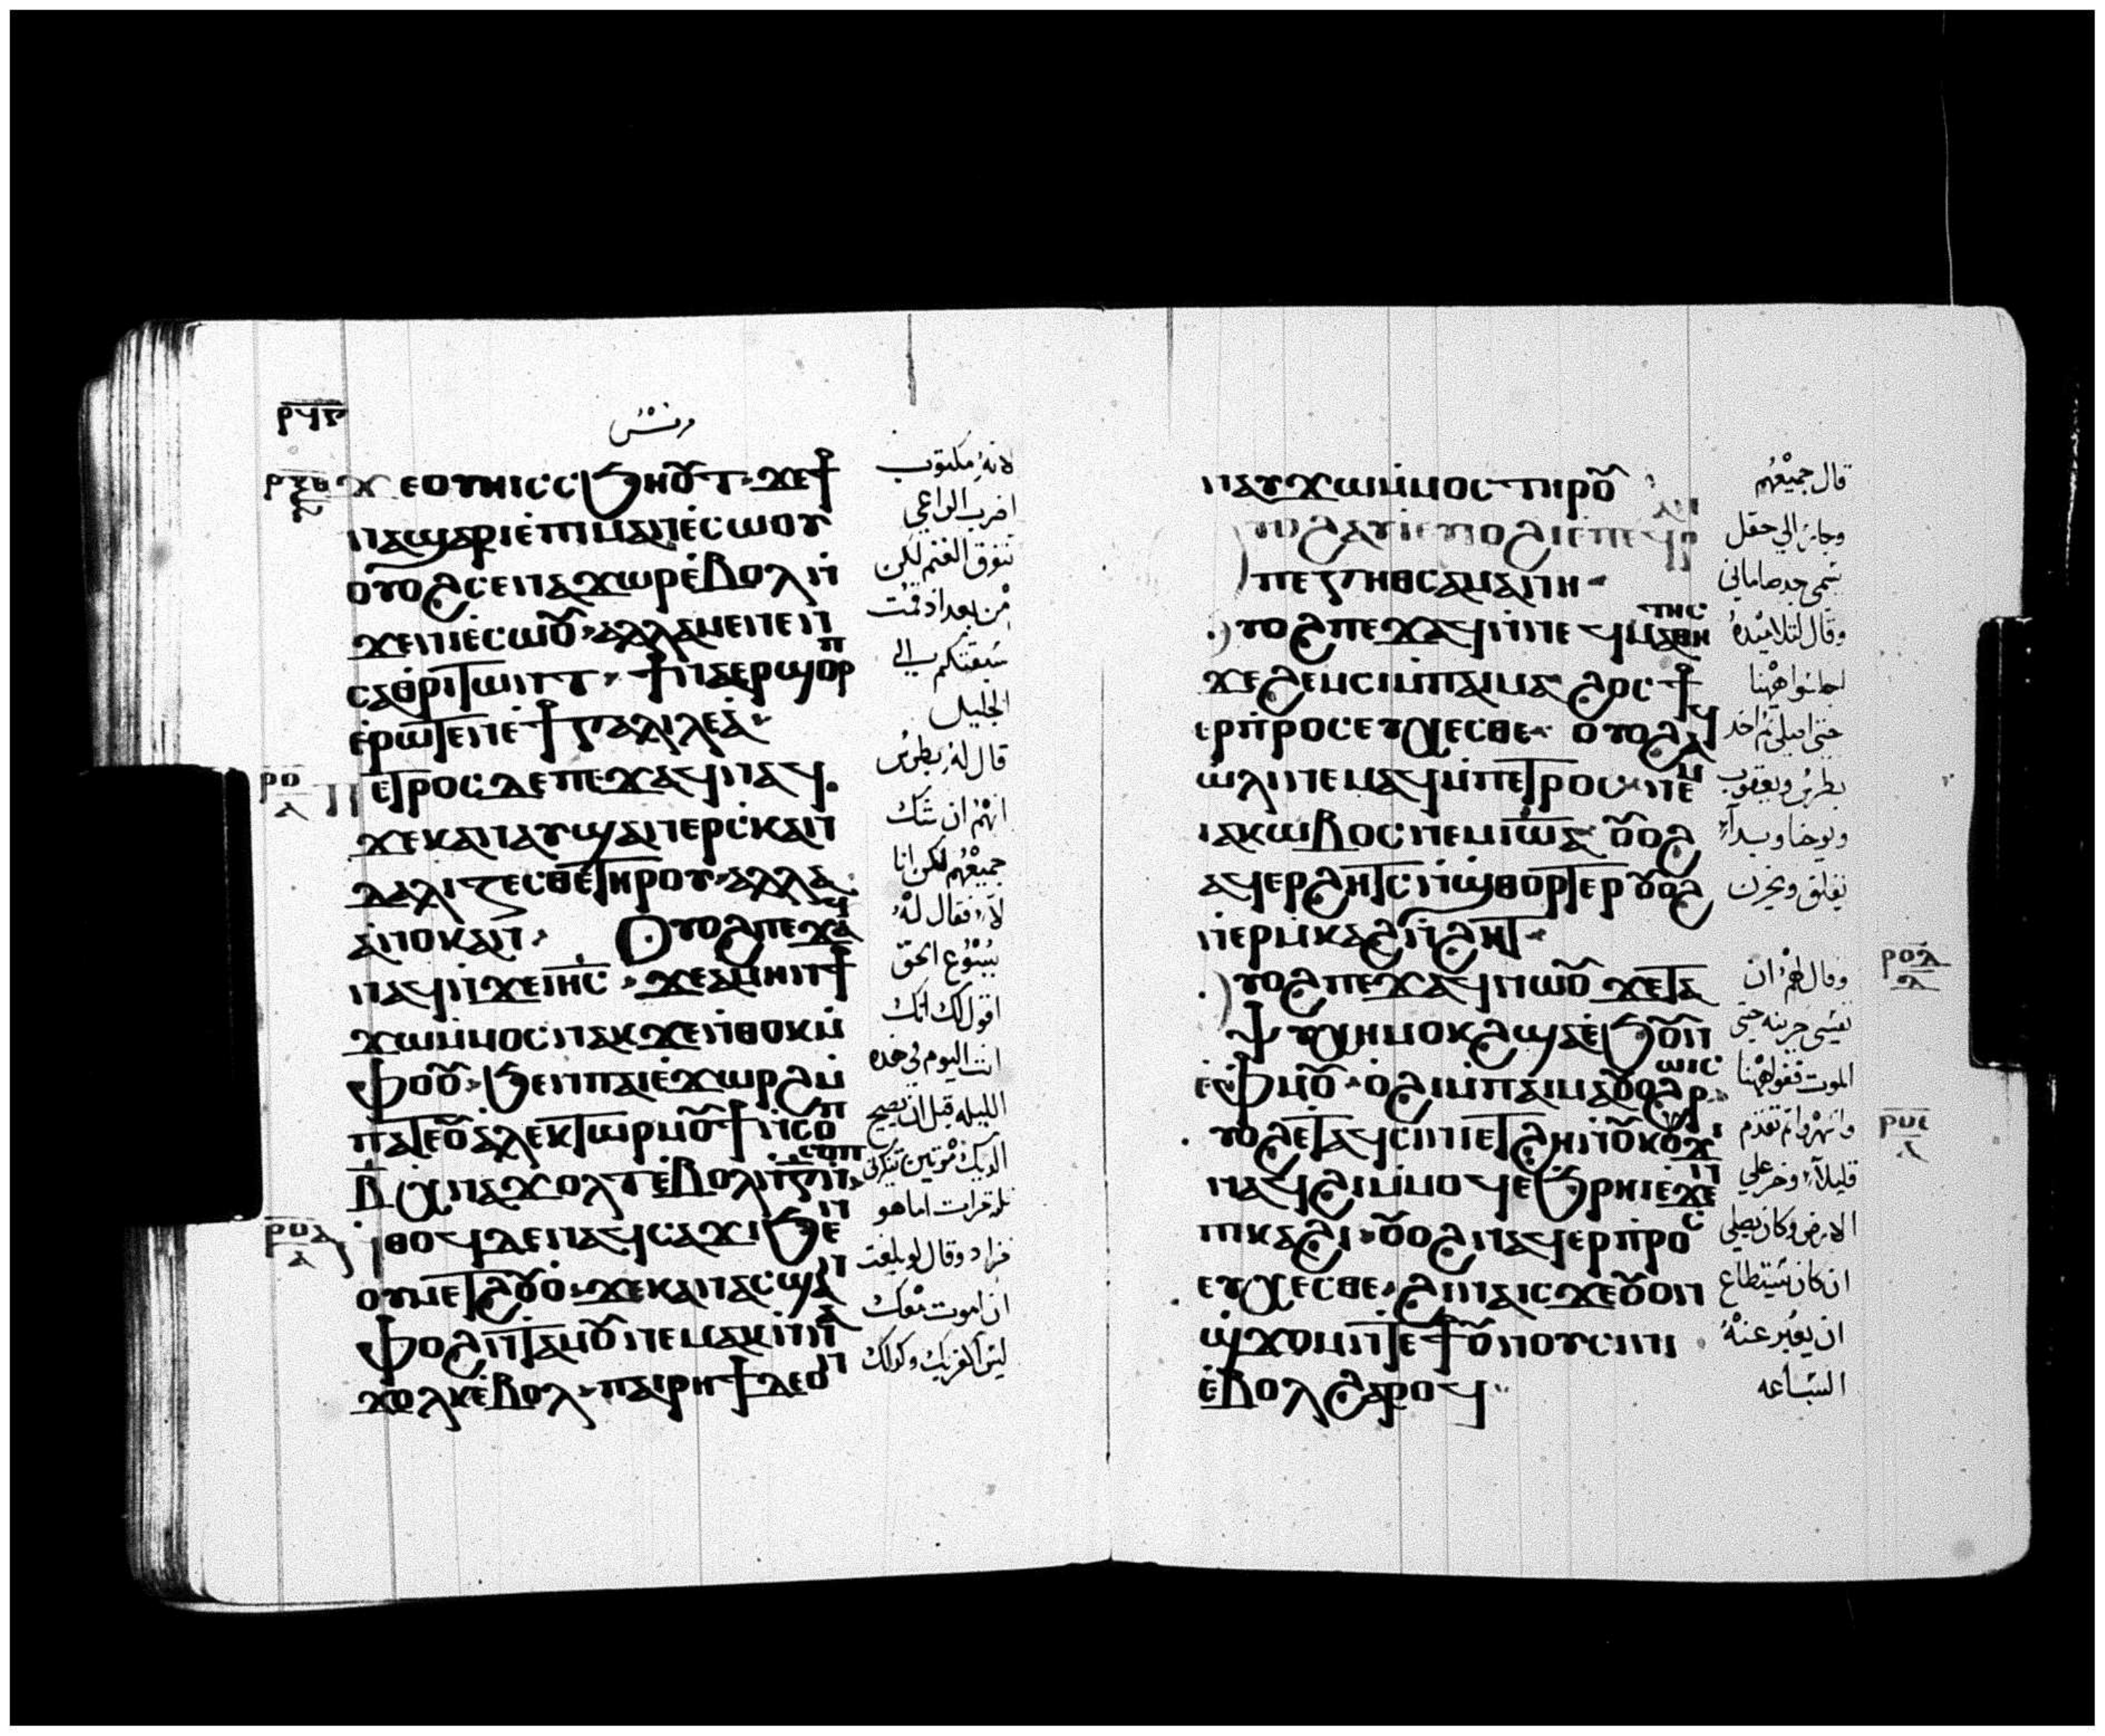 ⲣϥⲍ
مرقس
ϫⲉⲟⲩⲏⲓ ⲥⲥϧⲏⲟⲩⲧ ϫⲉϯ
ⲛⲁϣⲁⲣⲓ ⲉⲡⲓⲙⲁⲛⲉⲥⲱⲟⲩ
ⲟⲩⲟϩ ⲥⲉⲛⲁϫⲱⲣ ⲉⲃⲟⲗ ⲛ
ϫⲉⲛⲓⲉⲥⲱⲟⲩ ⲁⲗⲗⲁ ⲙⲉⲛⲉⲛ
ⲥⲁⲑⲣⲓⲧⲱⲛⲧ ϯⲛⲁⲉⲣϣⲟⲣⲡ
ⲉⲣⲱⲧⲉⲛ ⲉϯⲅⲁⲗⲓⲗⲉⲁ
ⲣⲟ
ⲡⲉⲧⲣⲟⲥ ⲇⲉ ⲡⲉϫⲁϥ ⲛⲁϥ
ϫⲉ ⲕⲁⲛ ⲁⲩϣⲁⲛⲉⲣⲥⲕⲁⲛ
ⲇⲁⲗⲓⲍⲉⲥⲑⲉ ⲧⲏⲣⲟⲩ ⲁⲗⲗⲁ
ⲁⲛⲟⲕ ⲁⲛ ⲟⲩⲟϩ ⲡⲉϫⲁϥ
ⲛⲁϥ ⲛϫⲉⲓⲏⲥ ϫⲉ ⲁⲙⲏⲛ ϯ
ϫⲱⲙⲙⲟⲥ ⲛⲁⲕ ϫⲉ ⲛⲑⲟⲕ ⲙ
ⲫⲟⲟⲩ ϧⲉⲛⲡⲁⲓⲉϫⲱⲣϩ ⲙ
ⲡⲁⲧⲉ ⲟⲩⲁⲗⲉⲕⲧⲱⲣ ⲙⲟⲩϯ ⲛⲥⲟⲡ
ⲃ ⲭⲛⲁϫⲟⲗⲧ ⲉⲃⲟⲗ ⲛⲅ ⲛⲥⲟⲡ
ⲣⲟⲁ
ⲛⲑⲟϥ ⲇⲉ ⲛⲁϥⲥⲁϫⲓ ϧⲉⲛ
ⲟⲩⲙⲉⲧϩⲟⲩⲟ ϫⲉ ⲕⲁⲛ ⲁⲥϣⲁⲛ
ⲫⲟϩ ⲛⲧⲁⲙⲟⲩ ⲛⲉⲙⲁⲕ ⲛⲛⲁ
ϫⲟⲗⲕ ⲉⲃⲟⲗ ⲡⲁⲓⲣⲏϯ ⲇⲉ ⲟⲛ
لانه مكتوب
اضرب الراعي
تتفرق الغنم لكن
من بعد اذ قمت
سبقتكم الي
الجليل
قال له بطرس
انهم ان شك
جميعهم لكن انا
لا فقال له
يسوع الحق
اقول لك انك
انت اليوم في هذه
الليله قبل ان يصيح
الديك مرتين تنكرني
ثلث مرات اما هو
فزاد وقال لو بلغت
ان اموت معك
ليس انكرك وكذلك
ⲛⲁⲩϫⲱⲙⲙⲟⲥ ⲧⲏⲣⲟⲩ
ⲡⲉ ⲅⲉⲑⲥⲁⲙⲁⲛⲏ
ⲟⲩⲟϩ ⲡⲉϫⲁϥ ⲛⲛⲉϥⲙⲁⲑⲏⲧⲏⲥ
ϫⲉ ϩⲉⲙⲥⲓ ⲙⲡⲁⲓⲙⲁ ϩⲟⲥ ϯ
ⲉⲣⲡⲣⲟⲥⲉⲩⲭⲉⲥⲑⲉ ⲟⲩⲟϩ ⲁϥ
ⲱⲗⲓ ⲛⲉⲙⲁϥ ⲙⲡⲉⲧⲣⲟⲥ ⲛⲉⲙ
ⲓⲁⲕⲱⲃⲟⲥ ⲛⲉⲙ ⲓⲱⲁ ⲟⲩⲟϩ
ⲁϥⲉⲣϩⲏⲧⲥ ⲛϣⲑⲟⲣⲧⲉⲣ ⲟⲩⲟϩ
ⲛⲉⲣⲙⲕⲁϩ ⲛϩⲏⲧ
ⲣⲟⲇ
ⲟⲩⲟϩ ⲡⲉϫⲁϥ ⲛⲱⲟⲩ ϫⲉ ⲧⲁ
ⲯⲩⲭⲏ ⲙⲟⲕϩ ϣⲁⲉϧⲟⲩⲛ
ⲉⲫⲙⲟⲩ ⲟϩⲓ ⲙⲡⲁⲓⲙⲁ ⲟⲩⲟϩ ⲣⲱⲓⲥ
ⲟⲩⲟϩ ⲉⲧⲁϥⲥⲓⲛⲓ ⲉⲧϩⲏ ⲛⲟⲩⲕⲟⲩϫⲓ
ⲛⲁϥϩⲓ ⲙⲙⲟϥ ⲉϧⲣⲏⲓ ⲉϫⲉⲛ
ⲡⲕⲁϩⲓ ⲟⲩⲟϩ ⲛⲁϥⲉⲣⲡⲣⲟⲥ
ⲉⲩⲭⲉⲥⲑⲉ ϩⲓⲛⲁ ⲓⲥϫⲉ ⲟⲩⲟⲛ
ϣϫⲟⲙ ⲛⲧⲉ ϯⲟⲩⲛⲟⲩ ⲥⲓⲛⲓ
ⲉⲃⲟⲗ ϩⲁⲣⲟϥ
قال جميعهم
وجاء الي حقل
يسمي جدصاماني
وقال لتلاميذه
اجلسوا ههنا
حتي اصلي ثم اخذ
بطرس ويعقوب
ويوحنا وبدأ
يقلق ويحزن
وقال لهم ان
نفسي حزينه حتي
الموت قفوا ههنا
واسهروا ثم تقدم
قليلا وخر علي
الارض وكان يصلي
ان كان يستطاع
ان يعبر عنه
الساعه